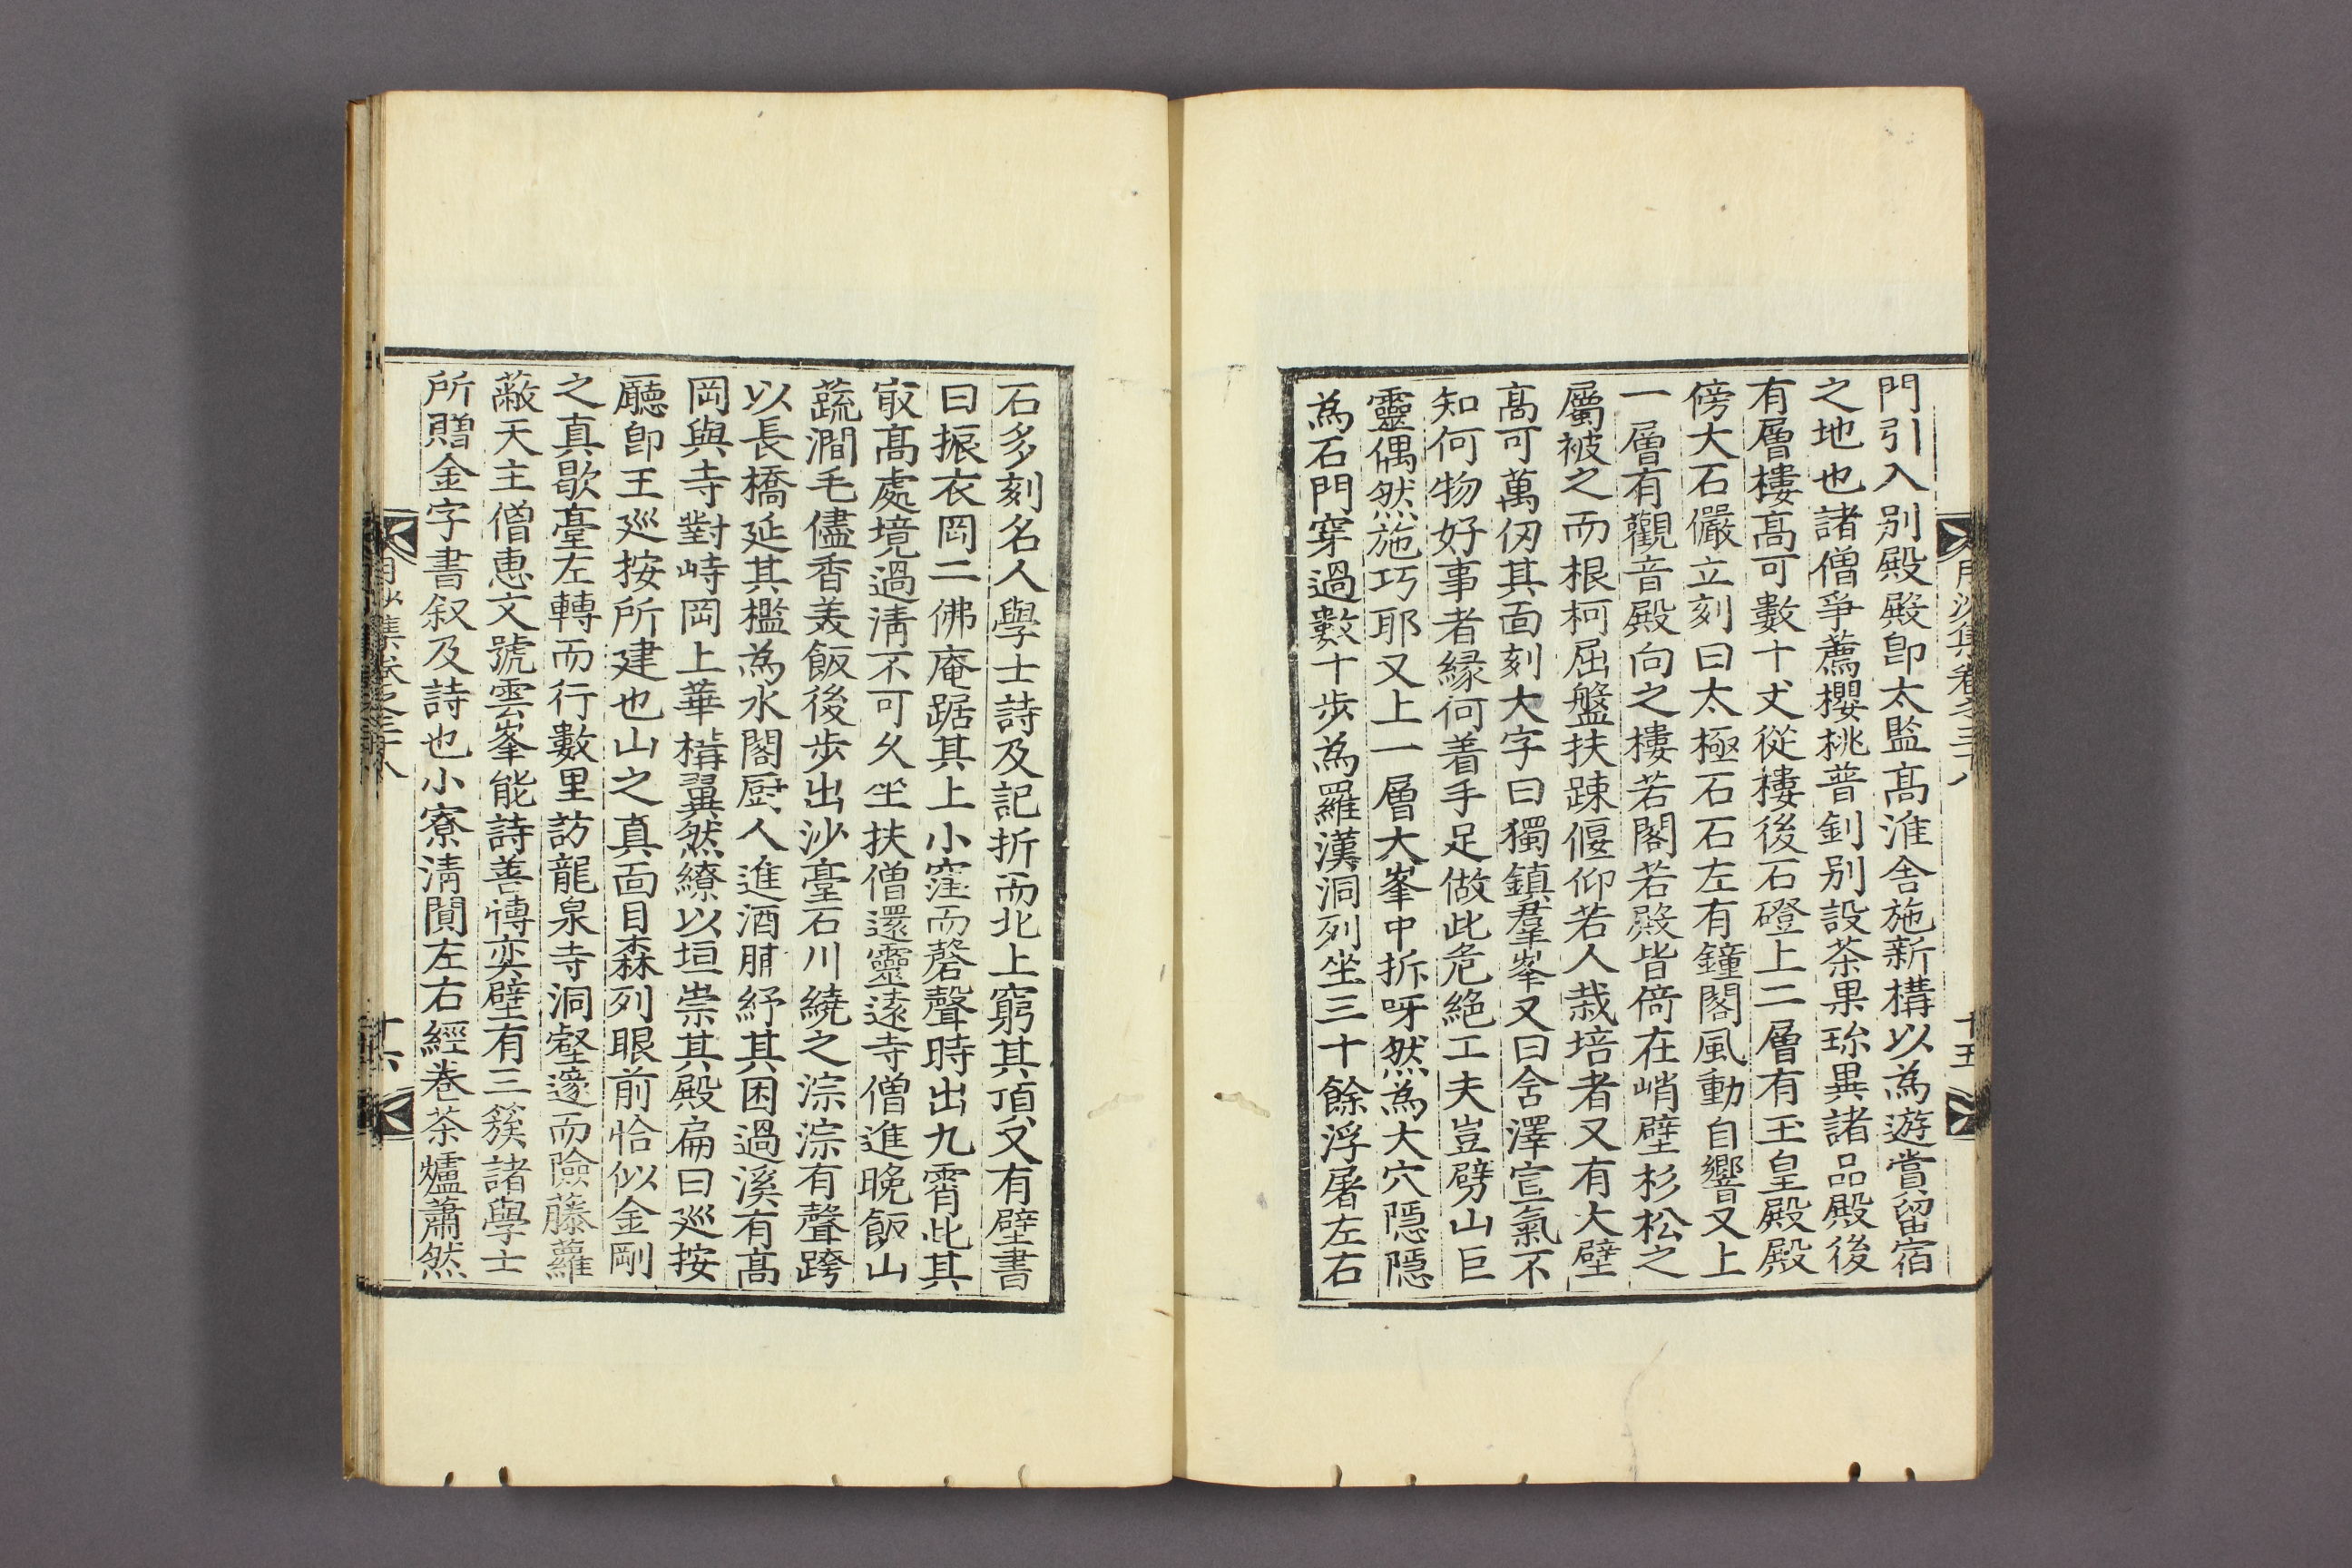 門引入別殿殿即太監高淮舍施新構以為遊賞留宿
之地也諸僧爭薦櫻桃普釗別設茶果珎異諸品殿後
有層樓高可數十丈從樓後石磴上二層有玉皇殿殿
傍大石儼立刻曰太極石石左有鐘閣風動自響又上
一層有觀音殿向之樓若閣若殿皆倚在峭壁杉松之
屬被之而根柯屈盤扶踈偃仰若人栽培者又有大壁
高可萬仞其面刻大字曰獨鎮羣峯又曰含澤宣氣不
知何物好事者緣何着手足做此危絕工夫豈劈山巨
靈偶然施巧耶又上一層大峯中拆呀然為大穴隱隱
為石門穿過數十步為羅漢洞列坐三十餘浮屠左右
月沙集卷之三十八
十五
石多刻名人學士詩及記折而北上窮其頂又有壁書
曰振衣岡二佛庵踞其上小窪而磬聲時出九霄此其
㝡高處境過淸不可久坐扶僧還靈遠寺僧進晚飯山
蔬澗毛儘香美飯後步出沙臺石川繞之淙淙有聲跨
以長橋延其檻為水閣厨人進酒脯紓其困過溪有高
岡與寺對峙岡上華構翼然繚以垣崇其殿扁曰巡按
廳即王巡按所建也山之真面目森列眼前恰似金剛
之真歇臺左轉而行數里訪龍泉寺洞壑邃而險藤蘿
蔽天主僧惠文號雲峯能詩善博奕壁有三簇諸學士
所贈金字書叙及詩也小寮淸閴左右經卷茶爐蕭然
月沙集卷之三十八
十六